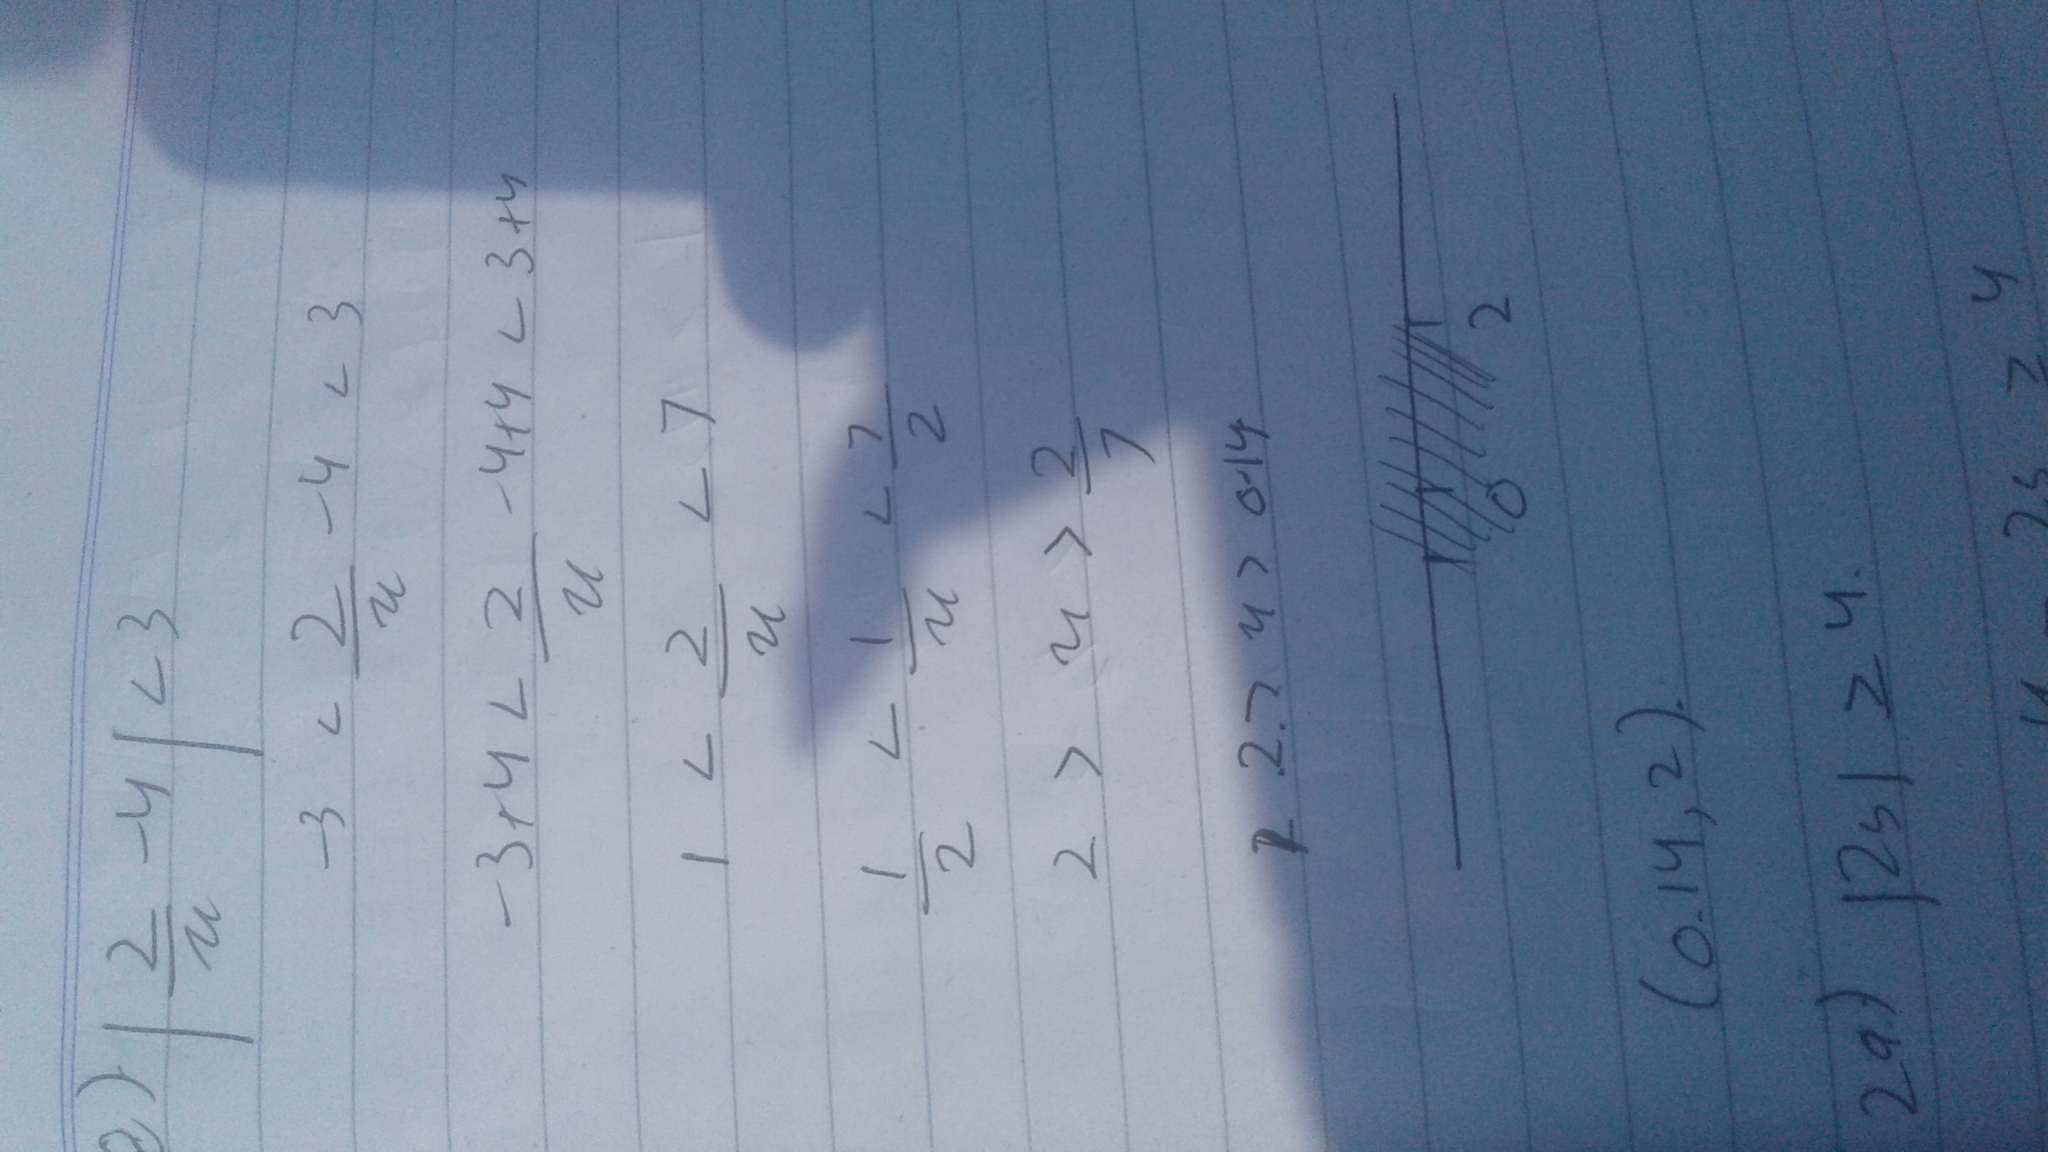 e) | 2/x - 4 | < 3
-3 < 2/x - 4 < 3
-3+4 < 2/x -4+4 < 3+4
1 < 2/x < 7
1/2 < 1/x < 7/2
2 > x > 2/7
2 > x > 0.14
0 2
(0.14, 2).
2a) |2s| ≥ 4.
2s ≥ 4